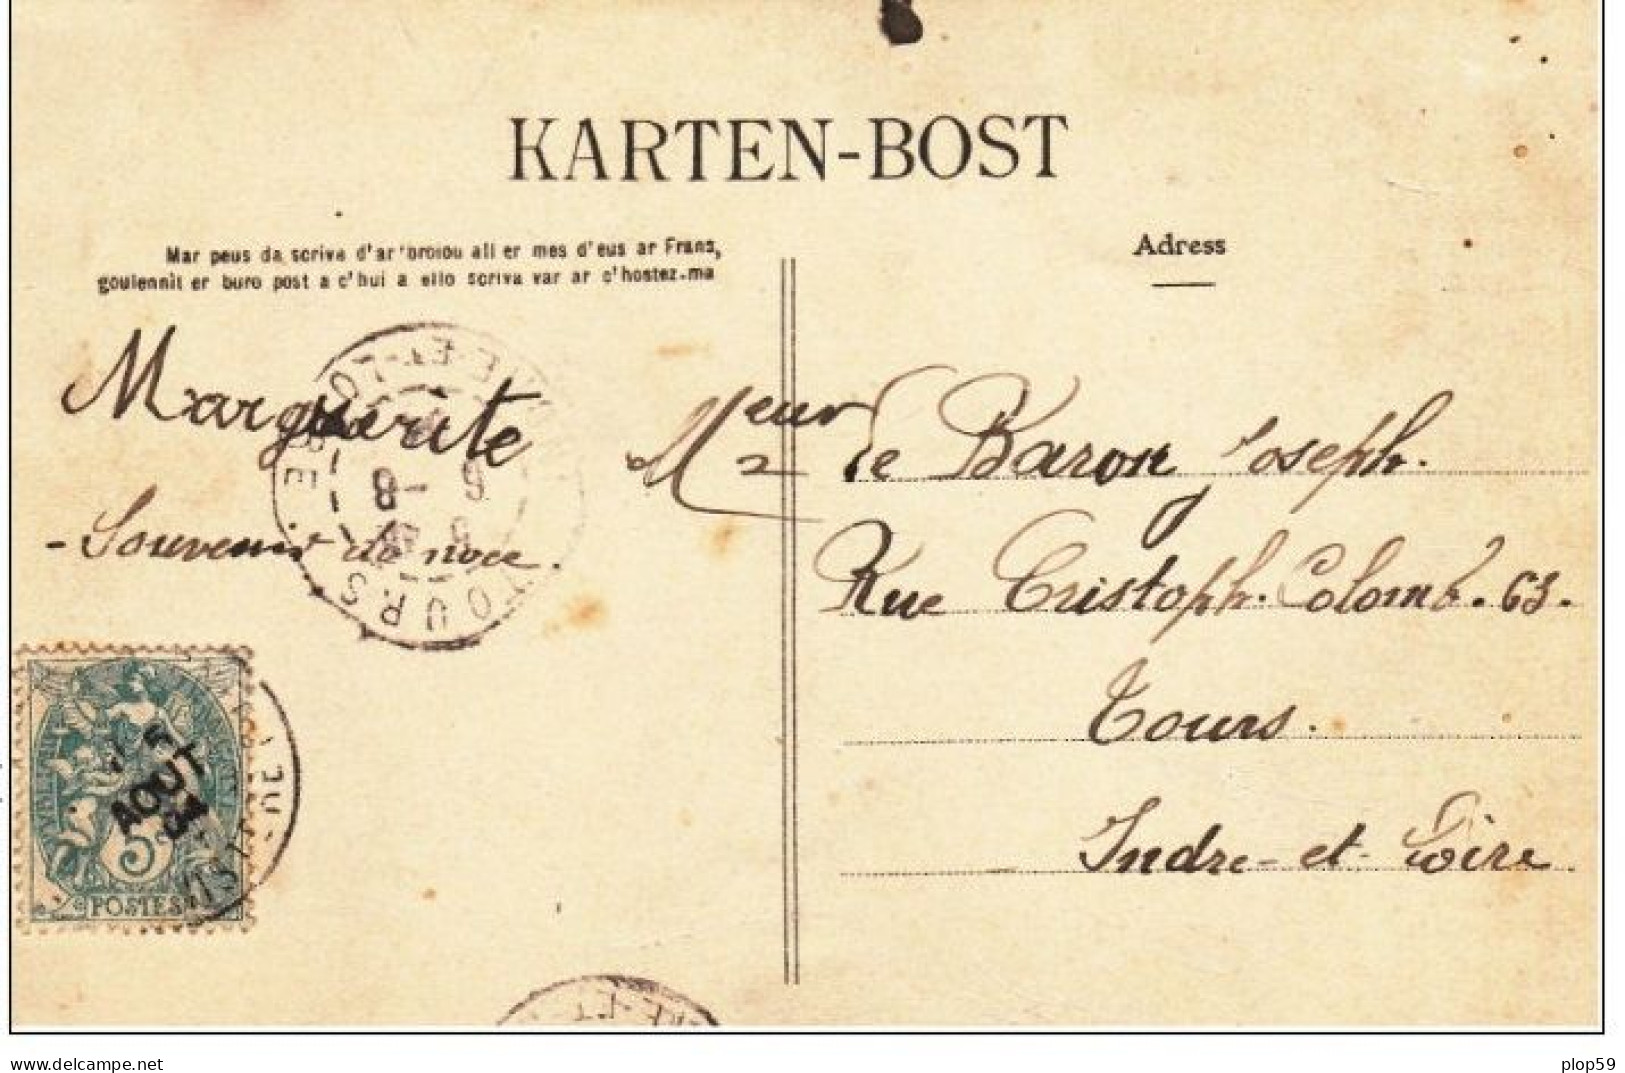 KARTEN-BOST
Mar peus da scriva d'ar broiou all er mes d'eus ar Frans,
goulennit er buro post a c'hui a ello scriva var ar c'hostez-ma
Adress
Marguerite
- Souvenir de noce.
Meur Le Baron Joseph.
Rue Cristoph. Colomb. 63.
Tours.
Indre-et-Loire
TOURS
E-ET-LO
RE
6 -8
AOUT
5
POSTES
RE-ET
www.delcampe.net
plop59